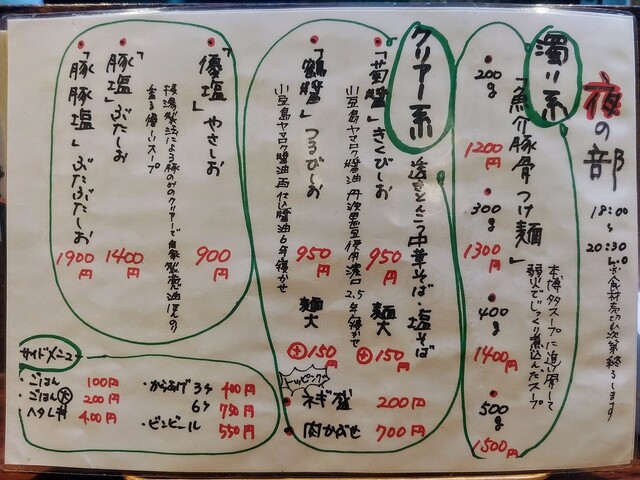 夜の部
18:00
〜
20:30
L.O
濁り系
「魚介豚骨つけ麺」
本博多スープに追い戻して
弱火でじっくり煮込んだスープ
200g
1200円
300g
1300円
400g
1400円
500g
1500円
クリアー系
透きとんこつ中華そば 塩そば
「菊醬」きくびしお
小豆島ヤマロク醤油 丹波黒豆使用 濃口 2.5年寝かせ
950円
麺大
⊕150円
「鶴醬」つるびしお
小豆島ヤマロク醤油 再仕込醤油 6年寝かせ
950円
麺大
⊕150円
トッピング
ネギ盛 200円
肉かぶせ 700円
「優塩」やさしお
900円
「豚塩」ぶたしお
1400円
「豚豚塩」ぶたぶたしお
1900円
サイドメニュー
・ごはん 100円
・ごはん大 200円
・ヘタレ丼 400円
・からあげ 3ケ 400円
6ケ 750円
・ビンビール 550円